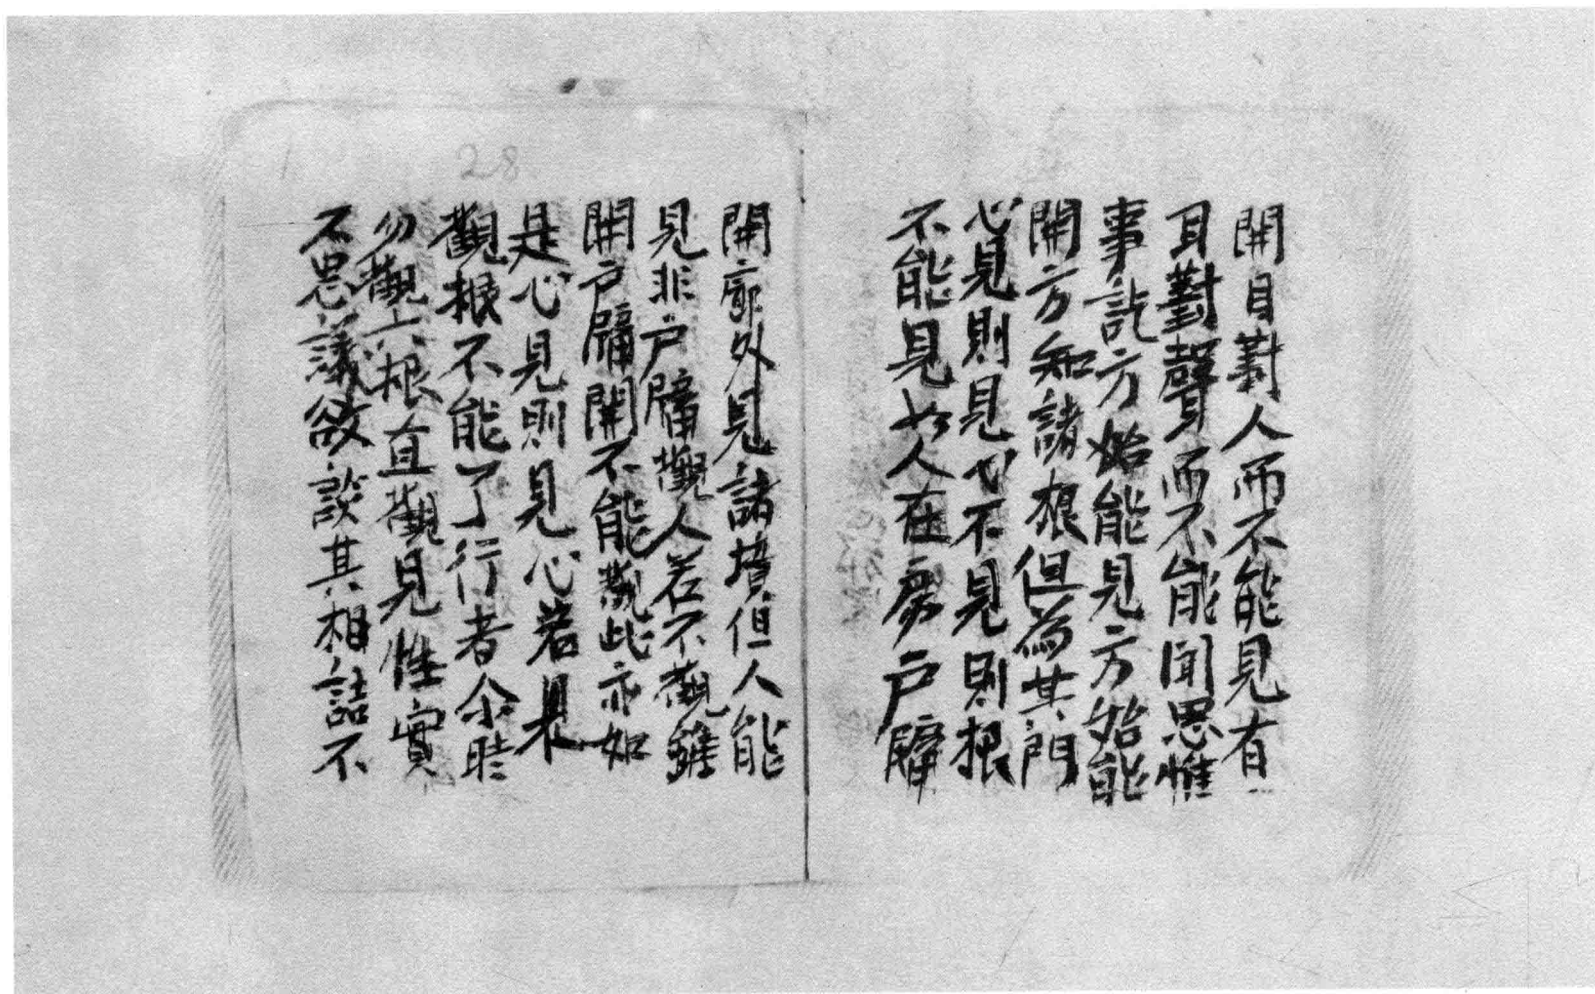 開目對人而不能見有
耳對聲而不能聞思惟
事訖方始能見方始能
開方知諸根但為其門
心見則見心不見則根
不能見如人在房戶牖
開廓外見諸境但人能
見非戶牖觀人若不觀雖
開戶牖開不能觀此亦如
是心見則見心若不
觀根不能了行者尒時
勿觀六根直觀見性實
不思議欲談其相詰不
28